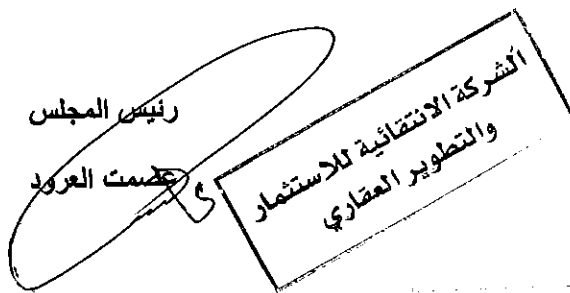 رئيس المجلس
عصمت العرود
الشركة الانتقائية للاستثمار
والتطوير العقاري